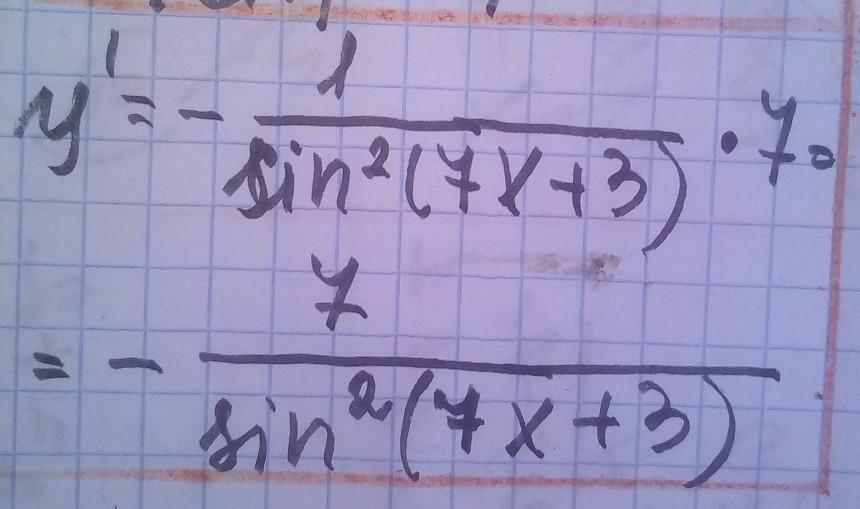 y' = - 1/sin²(7x+3) · 7 =
= - 7/sin²(7x+3)